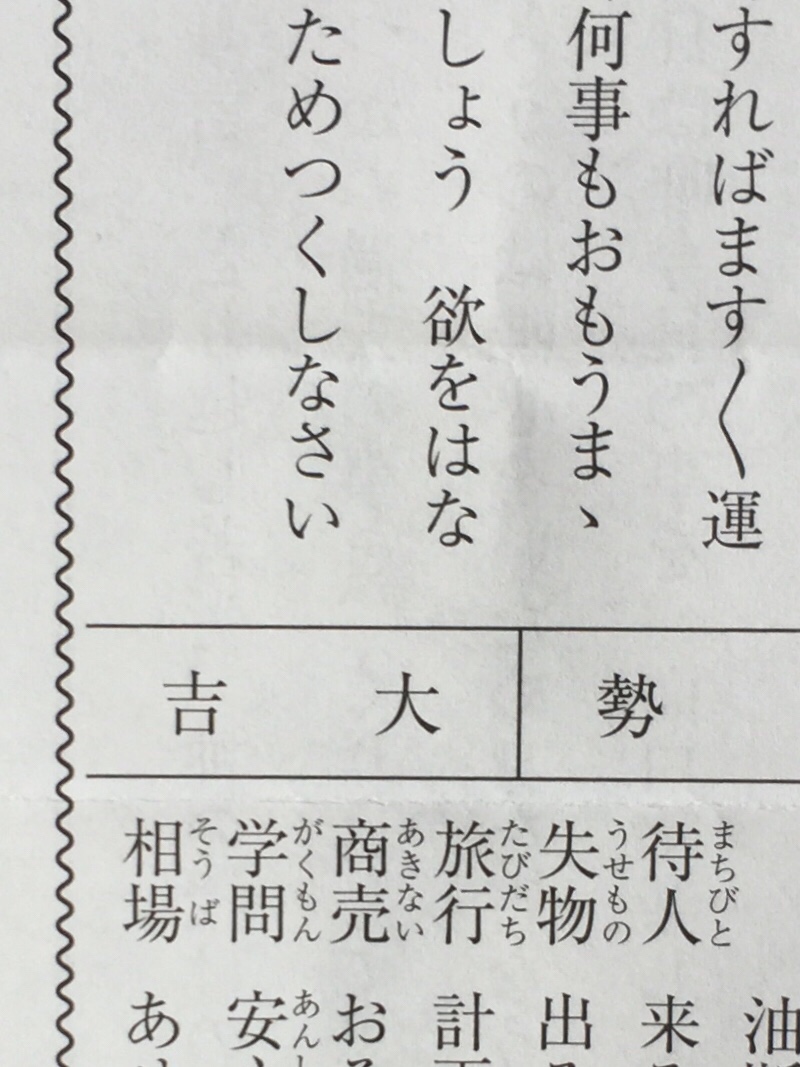 すればます〱運
何事もおもうまゝ
しょう 欲をはな
ためつくしなさい
勢
大吉
油
待人 まちびと 来
失物 うせもの 出
旅行 たびだち 計
商売 あきない お
学問 がくもん 安 あん
相場 そうば あ